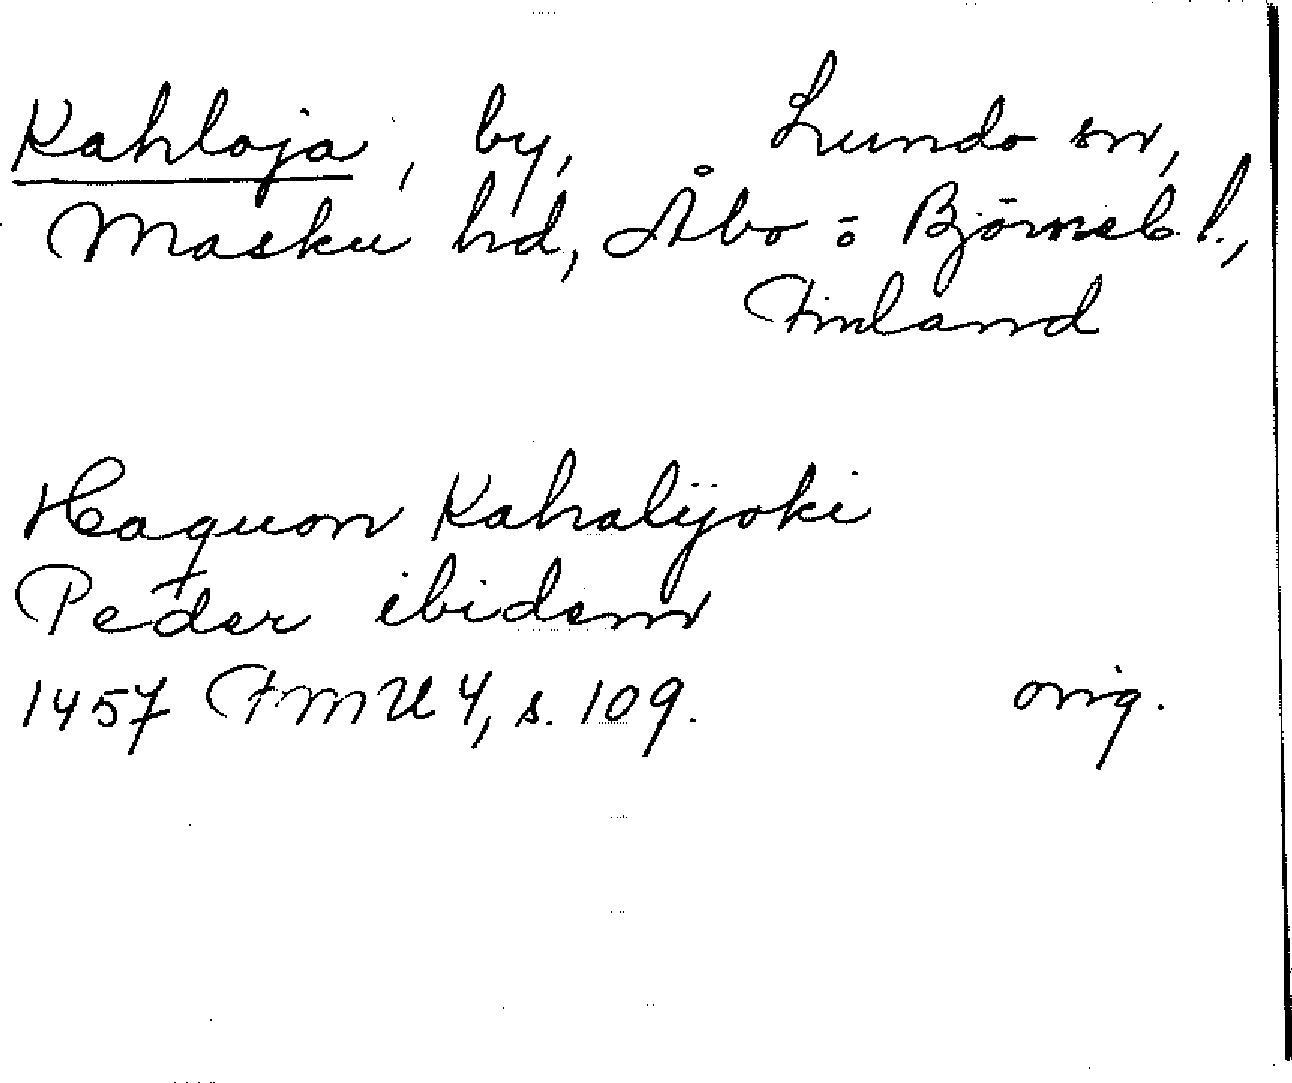 Kahloja, by, Lundo sn,
Masku hd, Åbo = Björneb. l.,
Finland
Haquon Kahalijoki
Peder ibidem
1457 FMU 4, s. 109. orig.